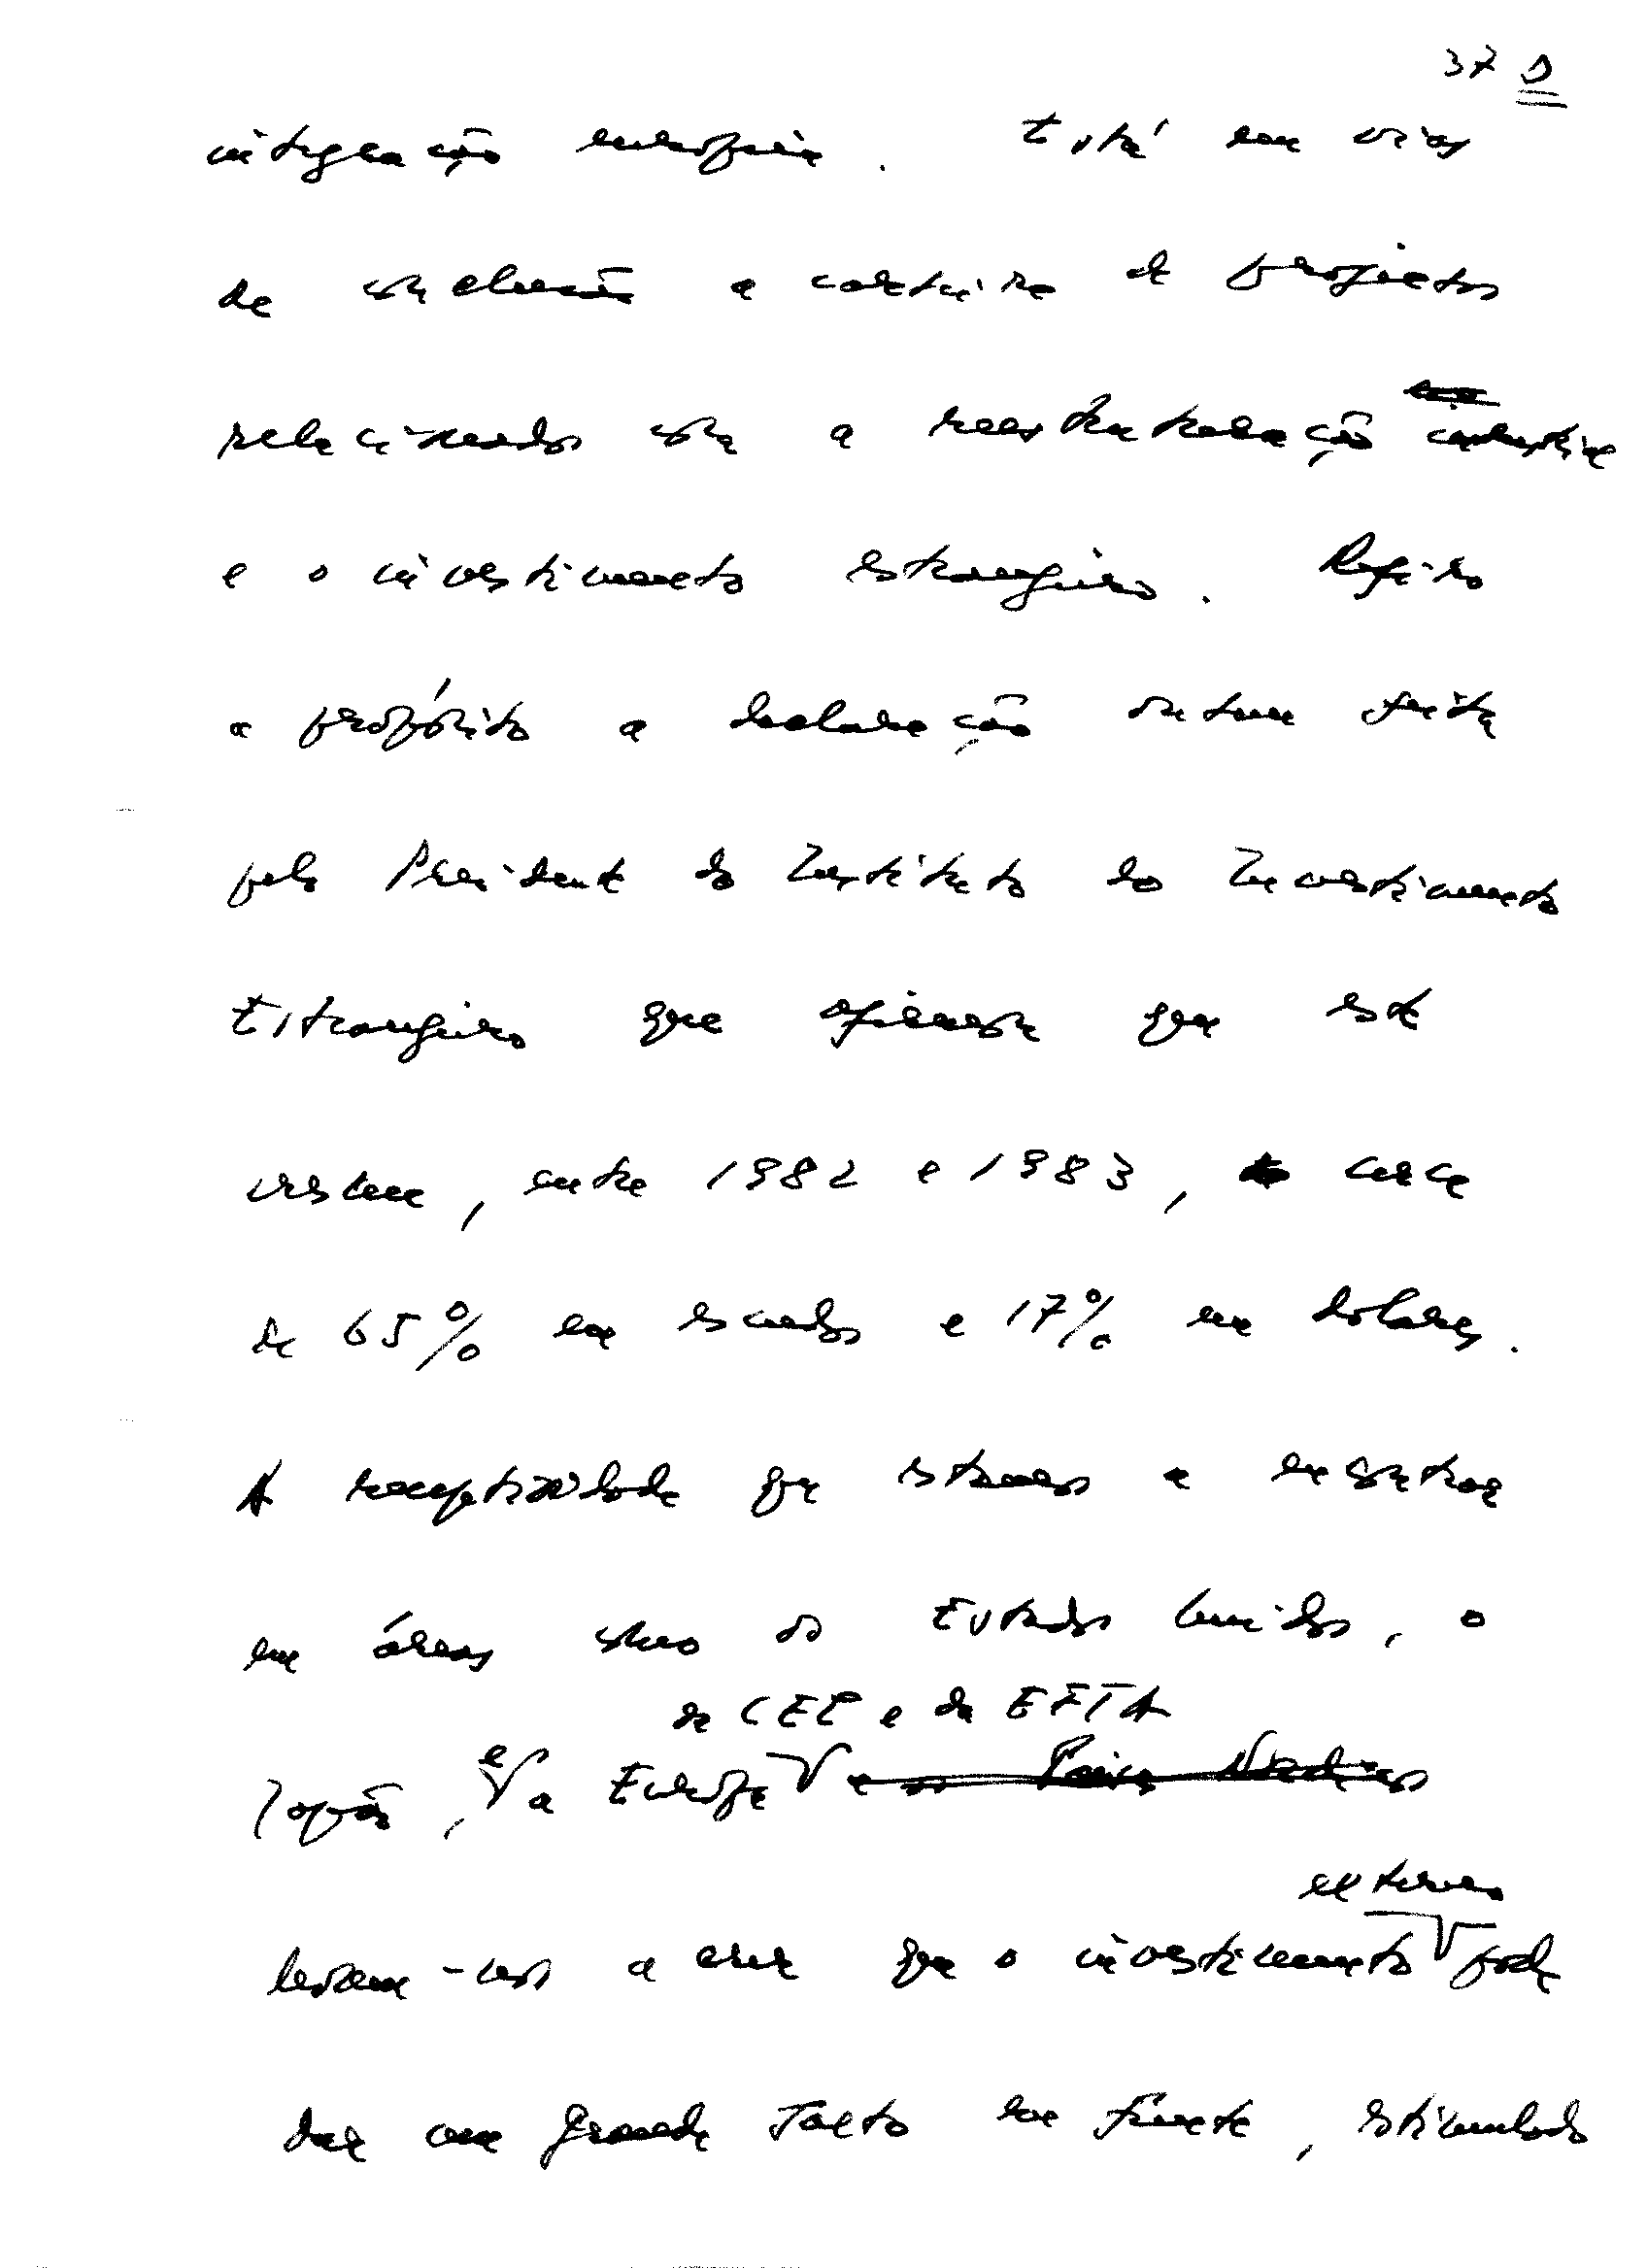 37 D
integração europeia. Está em vias
de conclusão a carteira de projectos
relacionados com a reestruturação industrial
e o investimento estrangeiro. Refiro
a propósito a declaração ontem feita
pelo Presidente do Instituto do Investimento
Estrangeiro que afirmava que este
cresceu, entre 1982 e 1983, cerca
de 65% em escudos e 17% em dolares.
A receptividade que estamos a encontrar
em áreas como os Estados Unidos, o
da CEE e da EFTA
Japão, e a Europa e os Países Nórdicos
externo
levam-nos a crer que o investimento pode
dar um grande salto em frente, estimulado